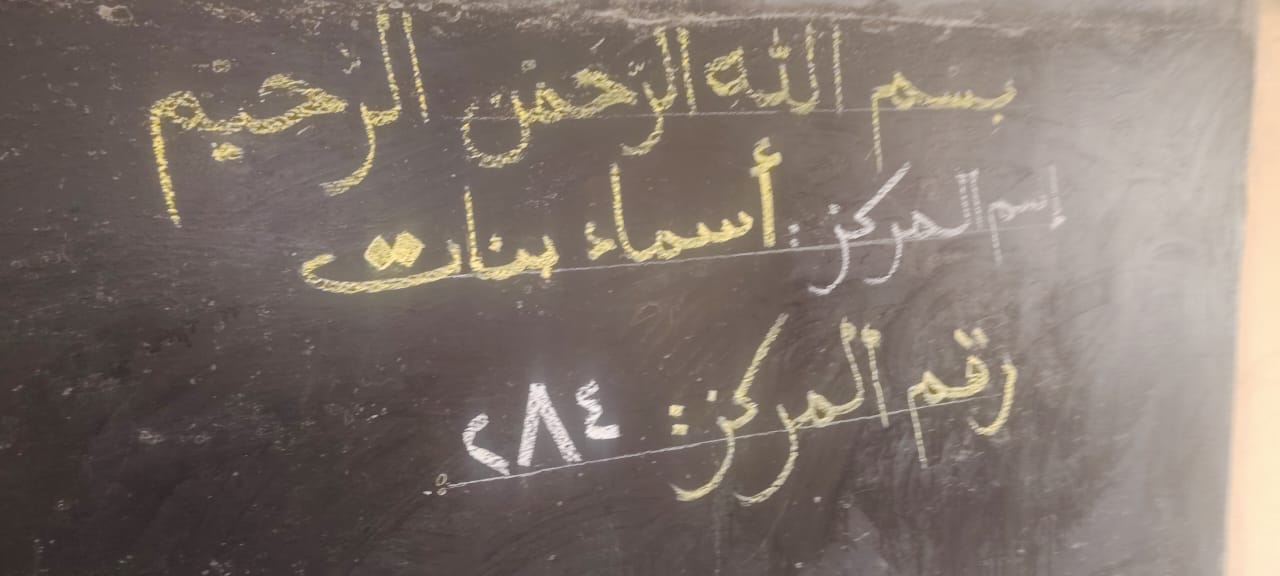 بسم الله الرحمن الرحيم
إسم المركز: أسماء بنات
رقم المركز: ٢٨٤